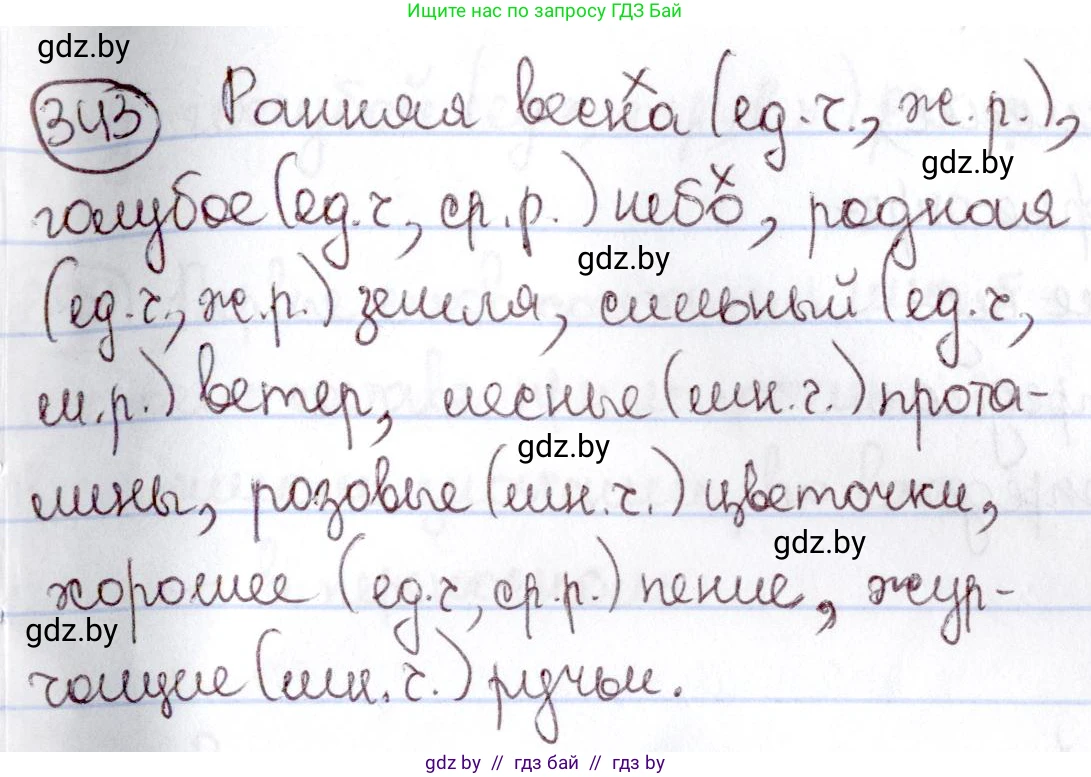 Ищите нас по запросу ГДЗ Бай
gdz.by
343 Ранняя весна (ед.ч., ж.р.),
gdz.by
голубое (ед.ч, ср.р.) небо, родная
gdz.by
(ед.ч., ж.р.) земля, сильный (ед.ч,
м.р.) ветер, лесные (мн.ч.) прота-
gdz.by
лины, розовые (мн.ч.) цветочки,
gdz.by
хорошее (ед.ч, ср.р.) пение, жур-
gdz.by
чащие (мн.ч.) ручьи.
gdz.by // гдз бай // гдз by